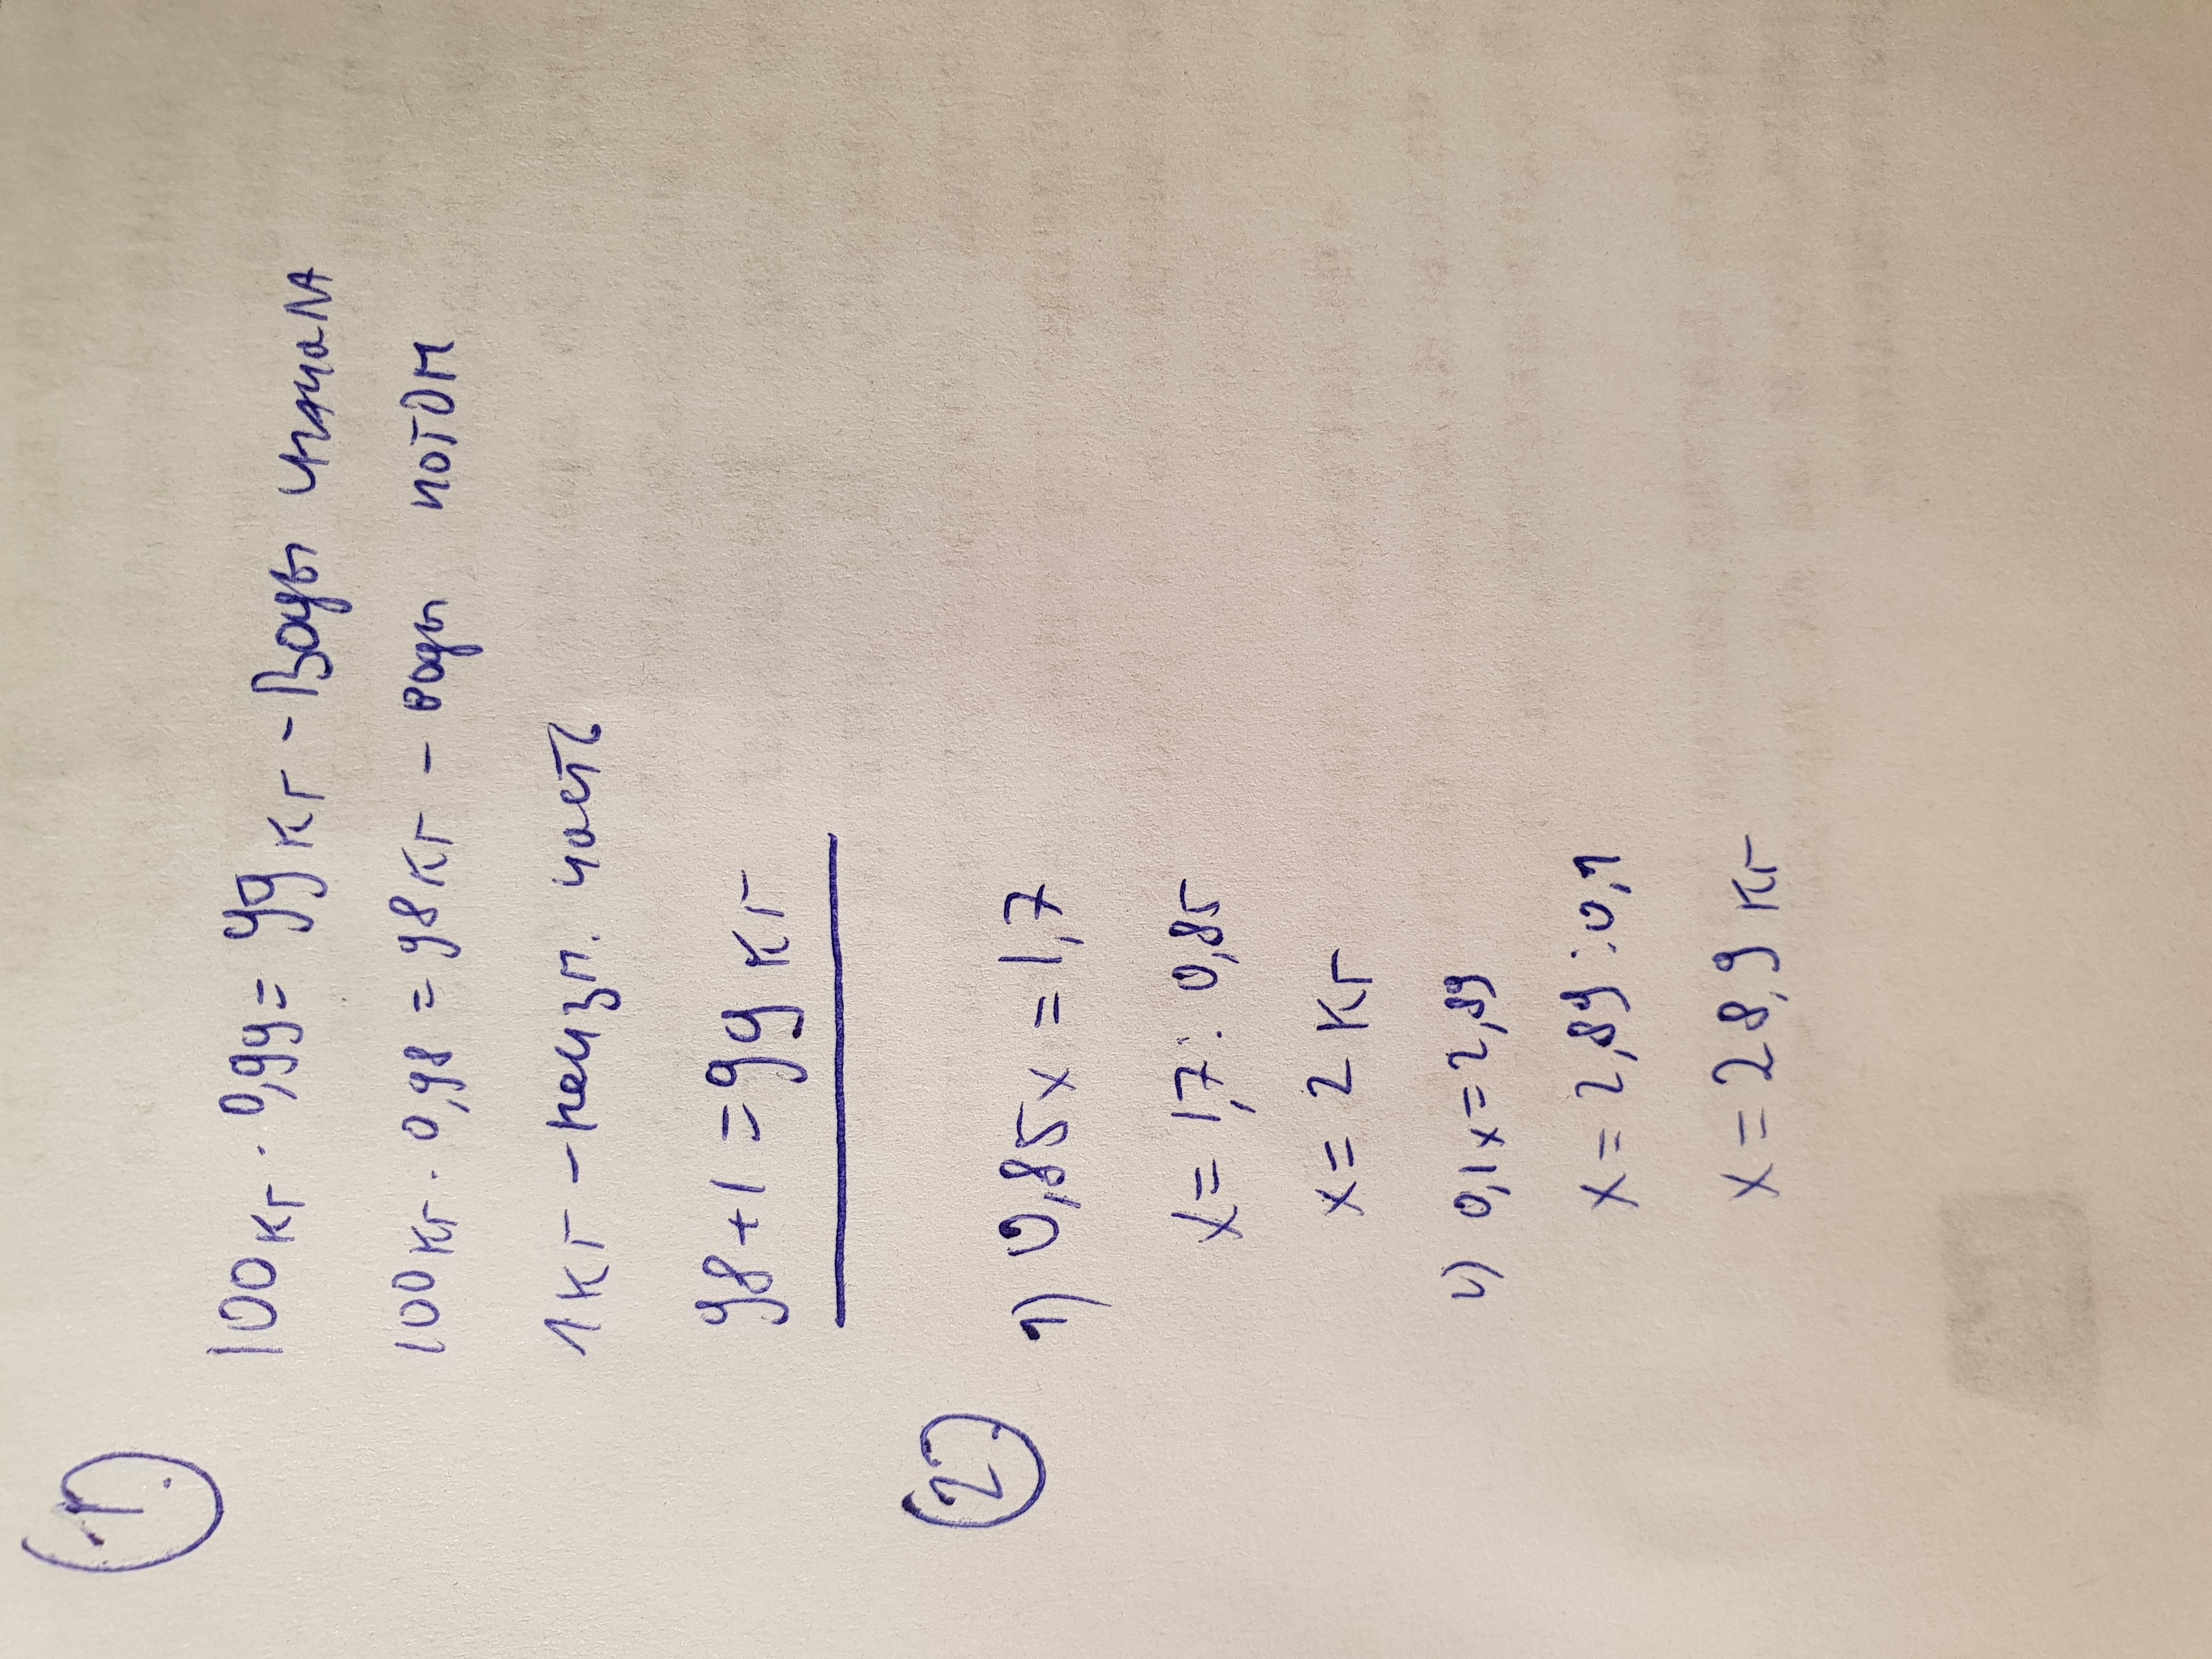 1.
100кг · 0,99 = 99 кг - воды начала
100кг · 0,98 = 98кг - воды потом
1кг - неизм. часть
98 + 1 = 99 кг
2.
1) 0,85x = 1,7
x = 1,7 : 0,85
x = 2 кг
2) 0,1x = 2,89
x = 2,89 : 0,1
x = 28,9 кг